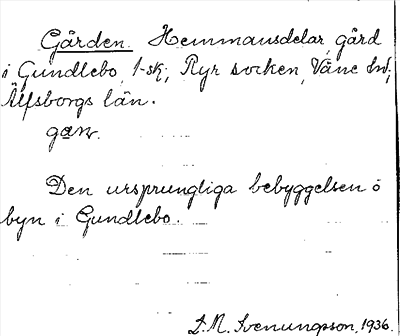 Gården. Hemmansdelar, gård
i Gundlebo, 1-sk; Ryr socken, Väne hd;
Älfsborgs län.
Den ursprungliga bebyggelsen å
byn i Gundlebo.
S. M. Svenungson, 1936.